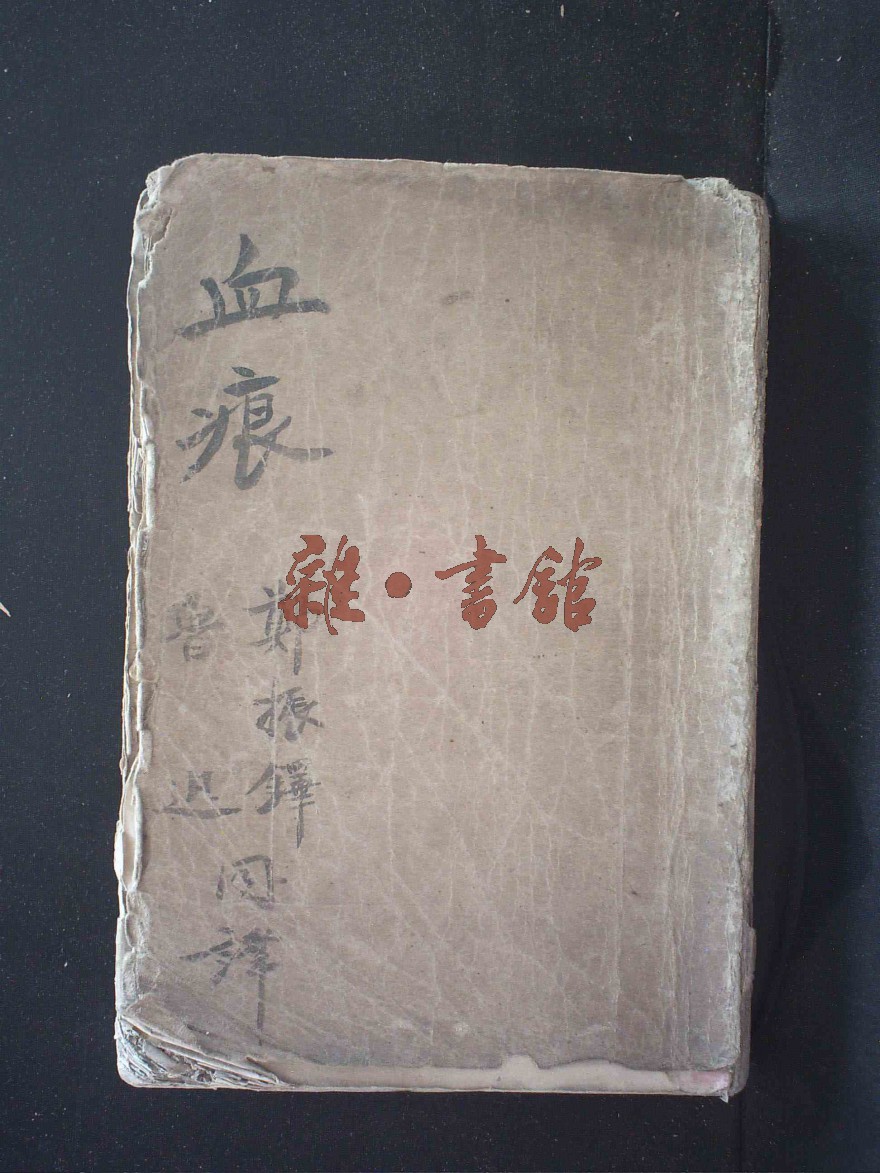 血痕
鄭振鐸
魯迅
同譯
雜·書館